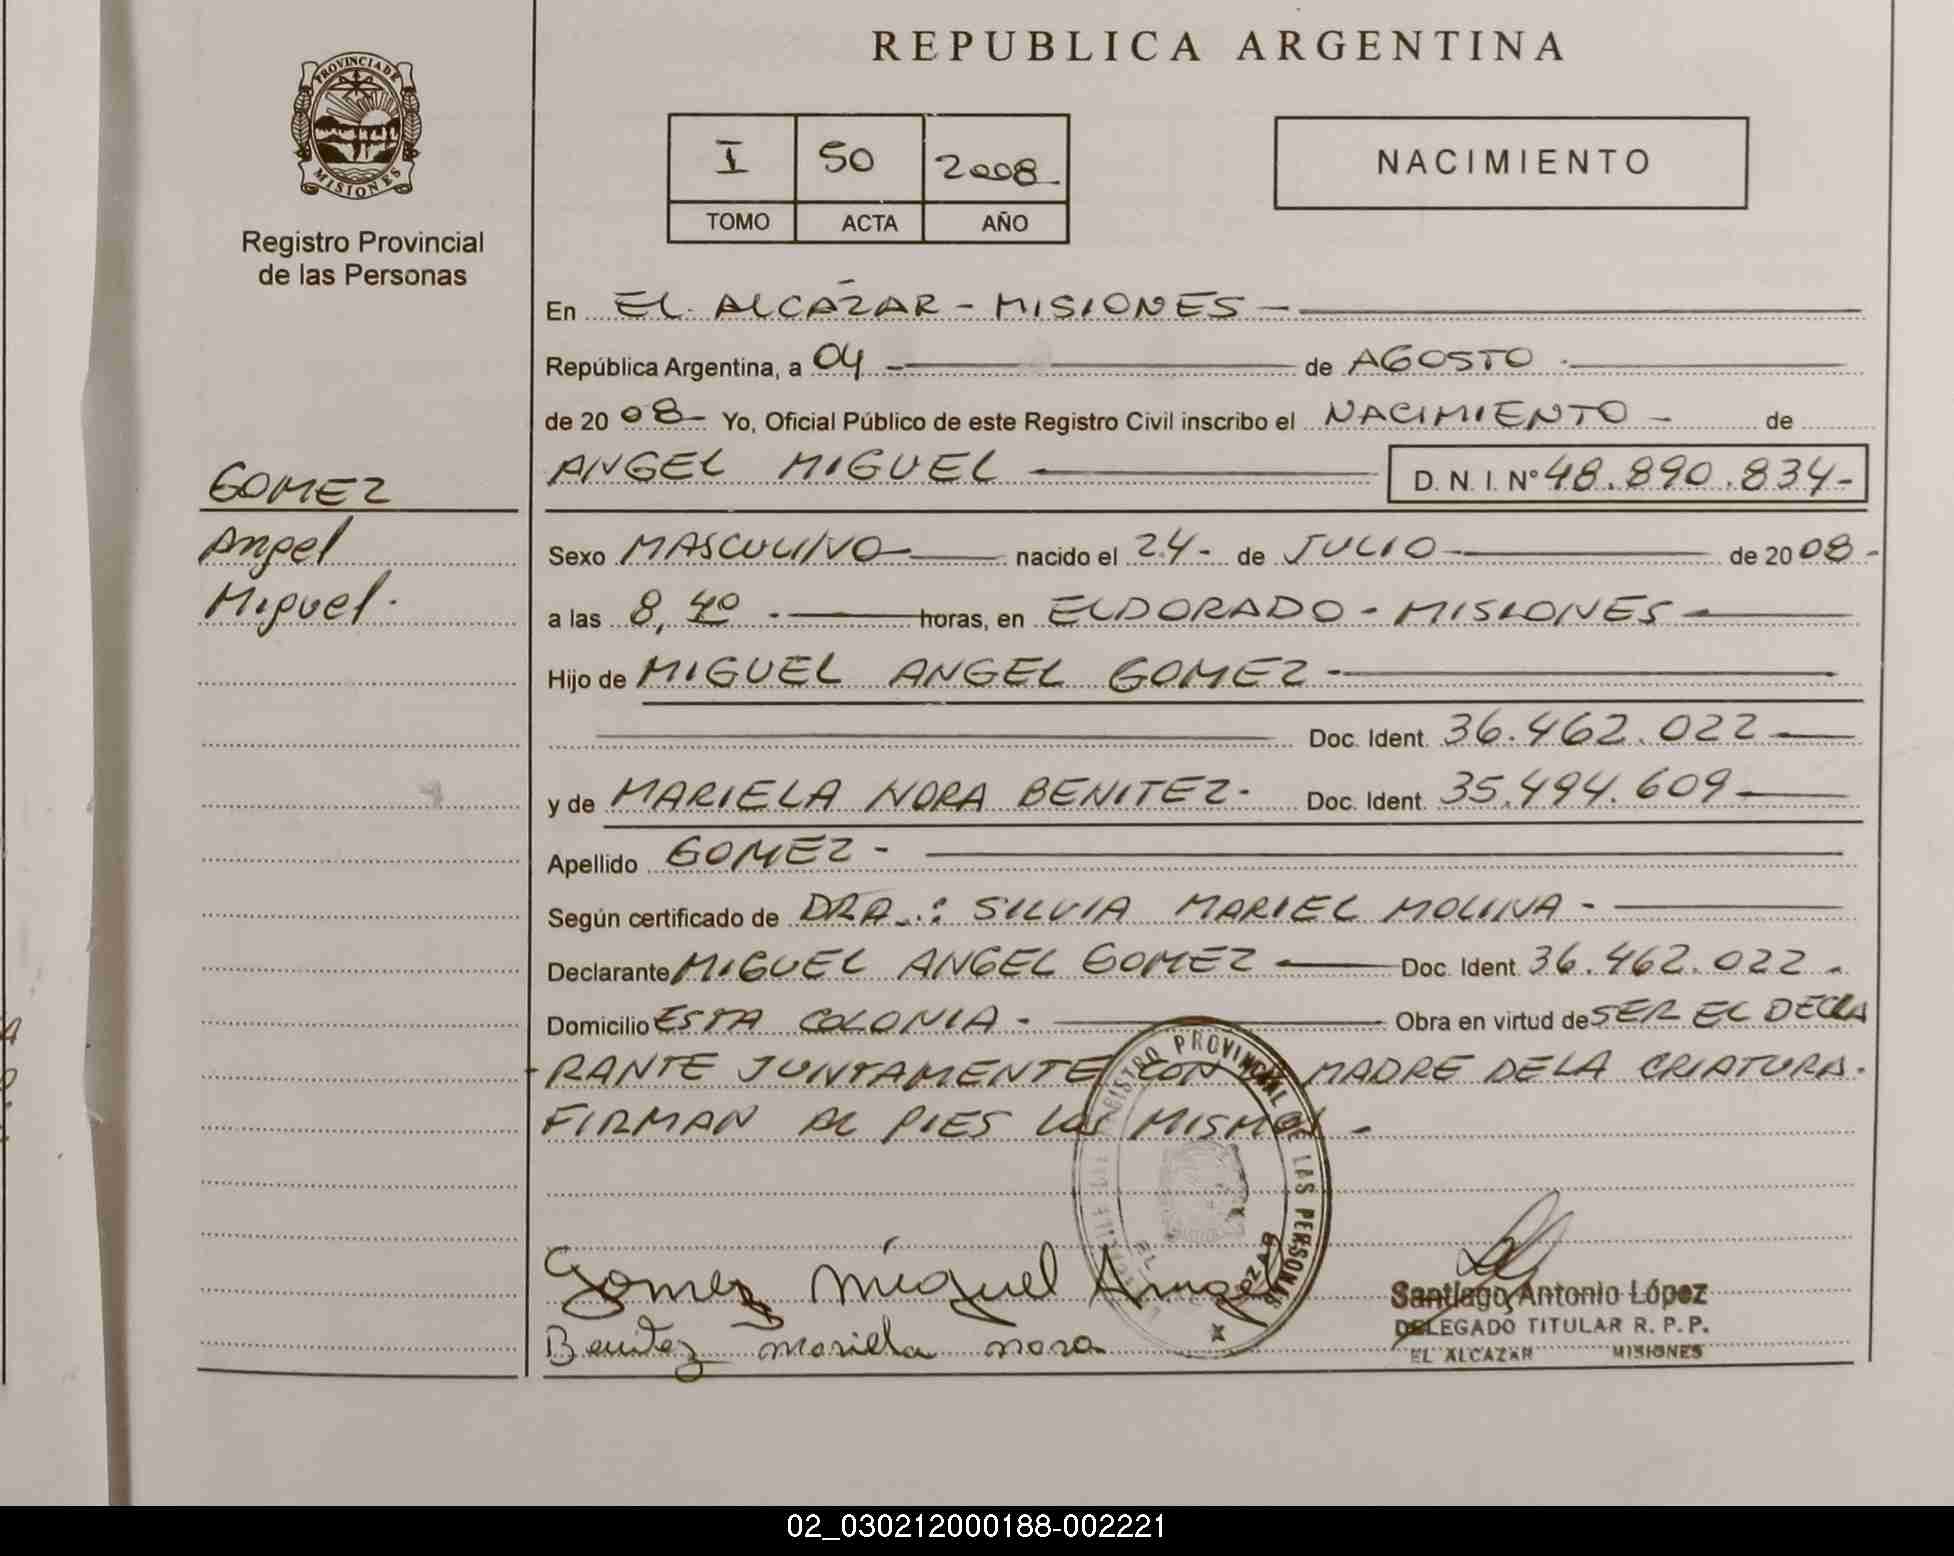 REPUBLICA ARGENTINA
PROVINCIA DE
MISIONES
Registro Provincial
de las Personas
I 50 2008
TOMO ACTA AÑO
NACIMIENTO
En EL ALCÁZAR - MISIONES -
República Argentina, a 04 - de AGOSTO -
de 2008- Yo, Oficial Público de este Registro Civil inscribo el NACIMIENTO - de
ANGEL MIGUEL - D. N. I. Nº 48.890.834-
GOMEZ
Angel
Miguel.
Sexo MASCULINO - nacido el 24- de JULIO - de 2008-
a las 8,40 - horas, en ELDORADO - MISIONES -
Hijo de MIGUEL ANGEL GOMEZ -
Doc. Ident. 36.462.022 -
y de MARIELA NORA BENITEZ- Doc. Ident. 35.494.609 -
Apellido GOMEZ -
Según certificado de DRA.: SILVIA MARIEL MOLINA -
Declarante MIGUEL ANGEL GOMEZ - Doc. Ident. 36.462.022 -
Domicilio ESTA COLONIA - Obra en virtud de SER EL DECLA
-RANTE JUNTAMENTE CON LA MADRE DE LA CRIATURA.
FIRMAN AL PIES LOS MISMOS -
REGISTRO PROVINCIAL DE LAS PERSONAS
Gomez Miguel Angel
Benitez mariela nora
Santiago Antonio López
DELEGADO TITULAR R. P. P.
EL ALCAZAR MISIONES
02_030212000188-002221